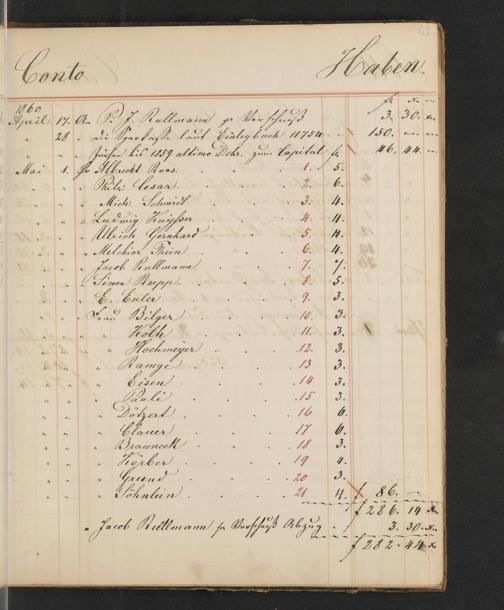 63
Conto Haben.
f x
1860
April 17. An P. J. Rullmann pr Vorschuß 3. 30.
" 28 " die Sparkasse laut Einlegbuch 11754 150. — —
" " " Zinsen bis 1859 ultimo Dcbr. zum Capital f 46. 44.
Mai 1. Pr Albrecht Roos. 1. 5.
" " " Philip Cesar. 2. 6.
" " " Mich: Schmidt 3. 4.
" " " Ludwig Kayßer 4. 4.
" " " Ulrich Gernhard 5. 4.
" " " Melchior Thein 6. 4.
" " " Jacob Rullmann 7. 7.
" " " Simon Rupp. 8. 5.
" " " C. Euler 9. 3.
" " " Frau Bilger 10. 3.
" " " " Koth 11. 3.
" " " " Hochmeyer 12. 3.
" " " " Range 13 3.
" " " " Eisen 14 3.
" " " " Pauli 15 3.
" " " " Dötzert 16 6.
" " " " Clauer 17 6.
" " " " Brauneck 18 3.
" " " " Körber 19 4.
" " " " Grund 20 3.
" " " " Söhnlein 21 4. f 86. —
f 286. 14 x
" Jacob Rullmann pr Vorschuß Abzug 3. 30. x
f 282. 44 x